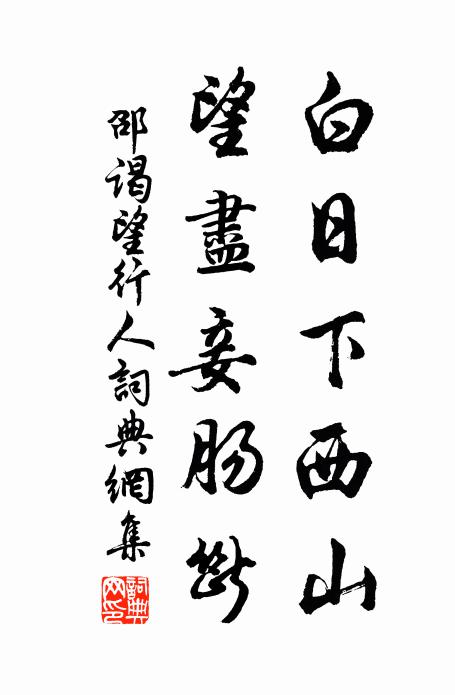 白日下西山
望盡妾腸斷
邵謁望行人詞典網集
詞典網印